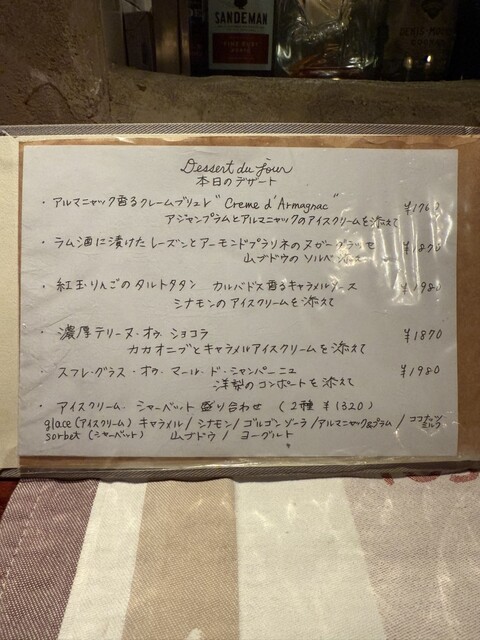 SANDEMAN
Dessert du jour
本日のデザート
・アルマニャック香るクレームブリュレ "Creme d'Armagnac"
アジャンプラムとアルマニャックのアイスクリームを添えて
・ラム酒に漬けたレーズンとアーモンドプラリネのヌガーグラッセ ¥1870
山ブドウのソルベ
・紅玉りんごのタルトタタン カルバドス香るキャラメルソース ¥1980
シナモンのアイスクリームを添えて
・濃厚テリーヌ・オゥ・ショコラ ¥1870
カカオニブとキャラメルアイスクリームを添えて
・スフレ・グラス・オゥ・マール・ド・シャンパーニュ ¥1980
洋梨のコンポートを添えて
・アイスクリーム・シャーベット盛り合わせ (2種 ¥1320)
glace (アイスクリーム) キャラメル / シナモン / ゴルゴンゾーラ / アルマニャック&プラム / ココナッツミルク
sorbet (シャーベット) 山ブドウ / ヨーグルト